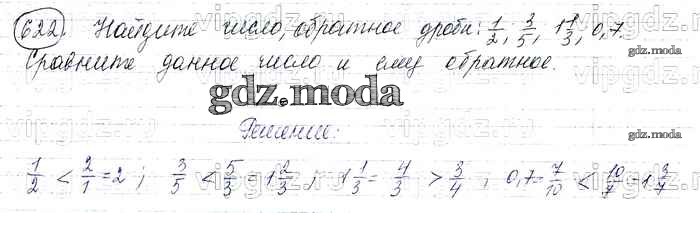 622. Найдите число, обратное дроби: 1/2; 3/5; 1 1/3; 0,7.
Сравните данное число и ему обратное.
gdz.moda
Решение:
1/2 < 2/1 = 2; 3/5 < 5/3 = 1 2/3; 1 1/3 = 4/3 > 3/4; 0,7 = 7/10 < 10/7 = 1 3/7